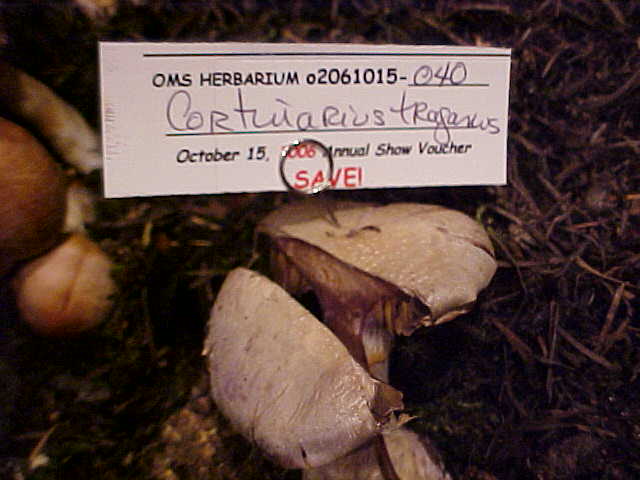 OMS HERBARIUM o2061015-040
CORTINARIUS TRAGANUS
October 15, 2006 Annual Show Voucher
SAVE!